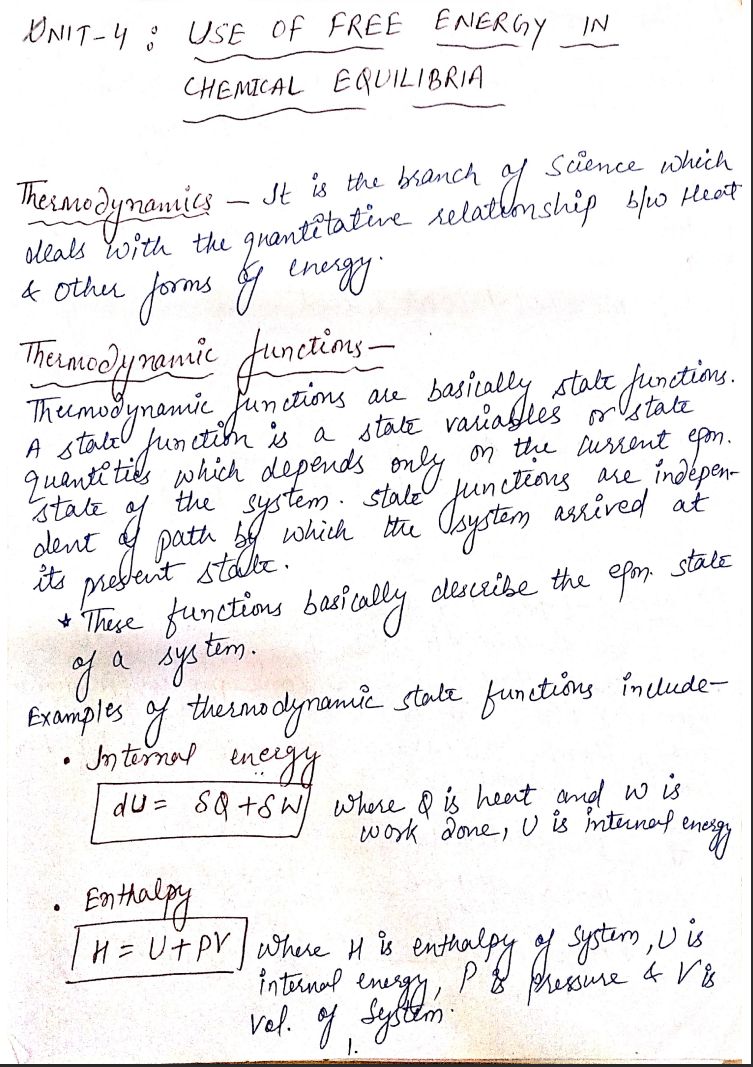 UNIT-4 : USE OF FREE ENERGY IN
CHEMICAL EQUILIBRIA
Thermodynamics – It is the branch of Science which
deals with the quantitative relationship b/w Heat
& other forms of energy.
Thermodynamic functions –
Thermodynamic functions are basically state functions.
A state function is a state variables or state
quantities which depends only on the current eqm.
state of the system. State functions are indepen-
dent of path by which the system arrived at
its present state.
* These functions basically describe the eqm. state
of a system.
Examples of thermodynamic state functions include–
• Internal energy
dU = δQ + δW where Q is heat and w is
work done, U is internal energy
• Enthalpy
H = U + PV where H is enthalpy of system, U is
internal energy, P is pressure & V is
Vol. of System.
1.